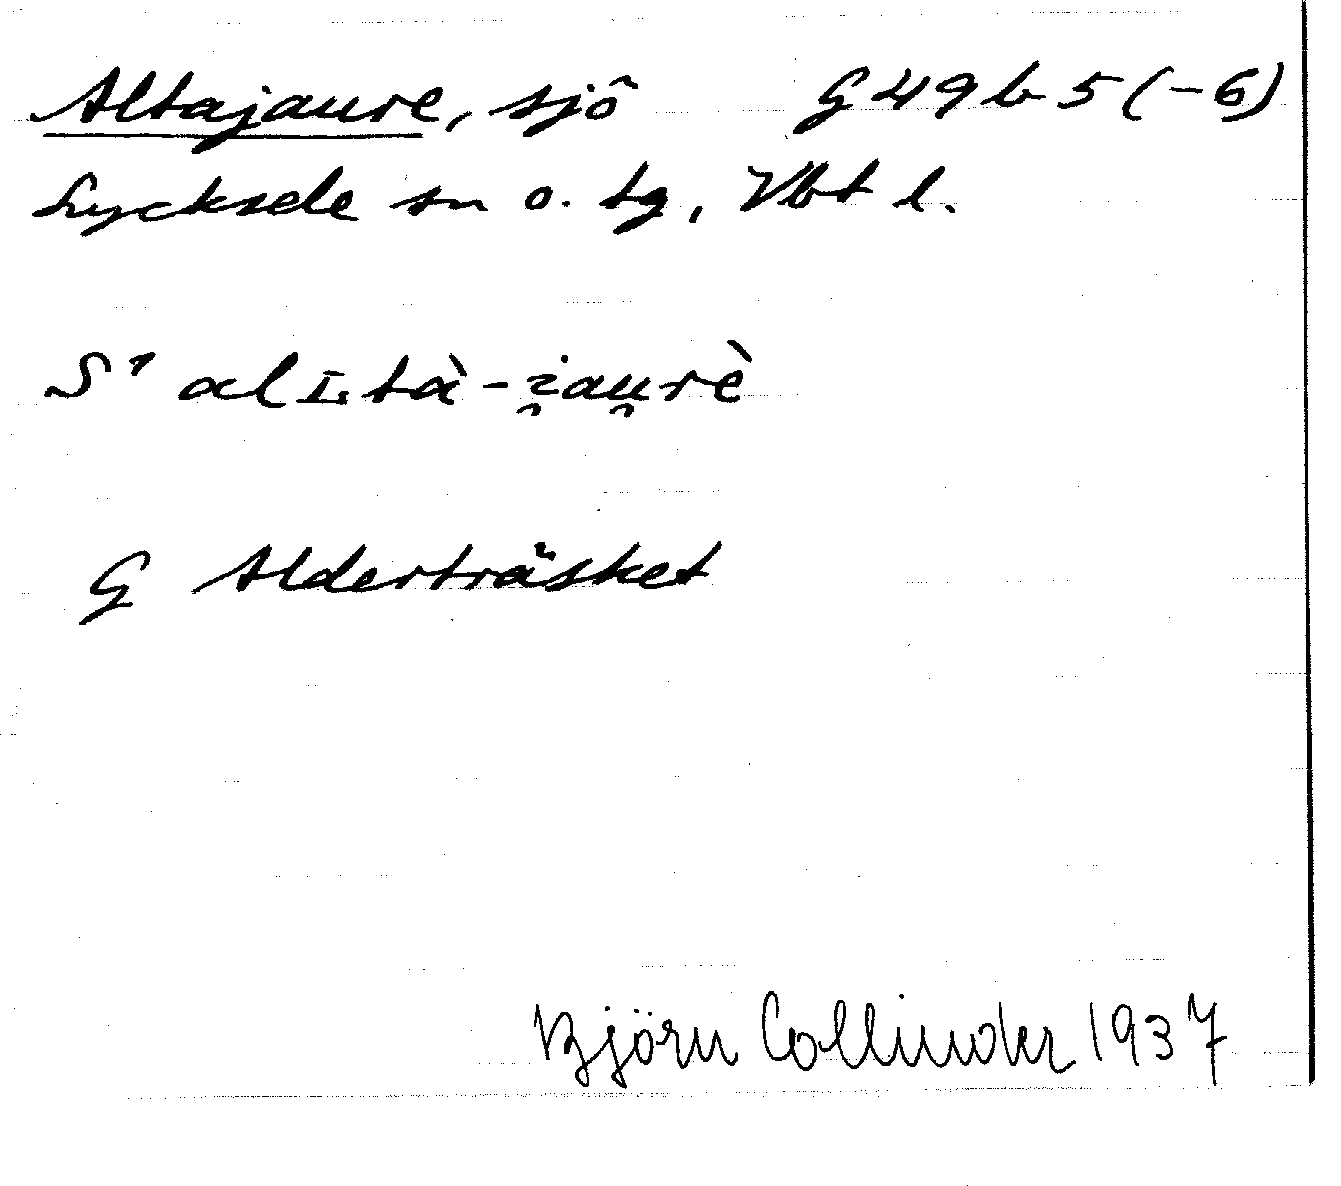 Altajaure, sjö G 49 b 5 (-6)
Lycksele sn o. tg, Vbt l.
S' alʟtà-i̯au̯rè
G Alderträsket
Björn Collinder 1937